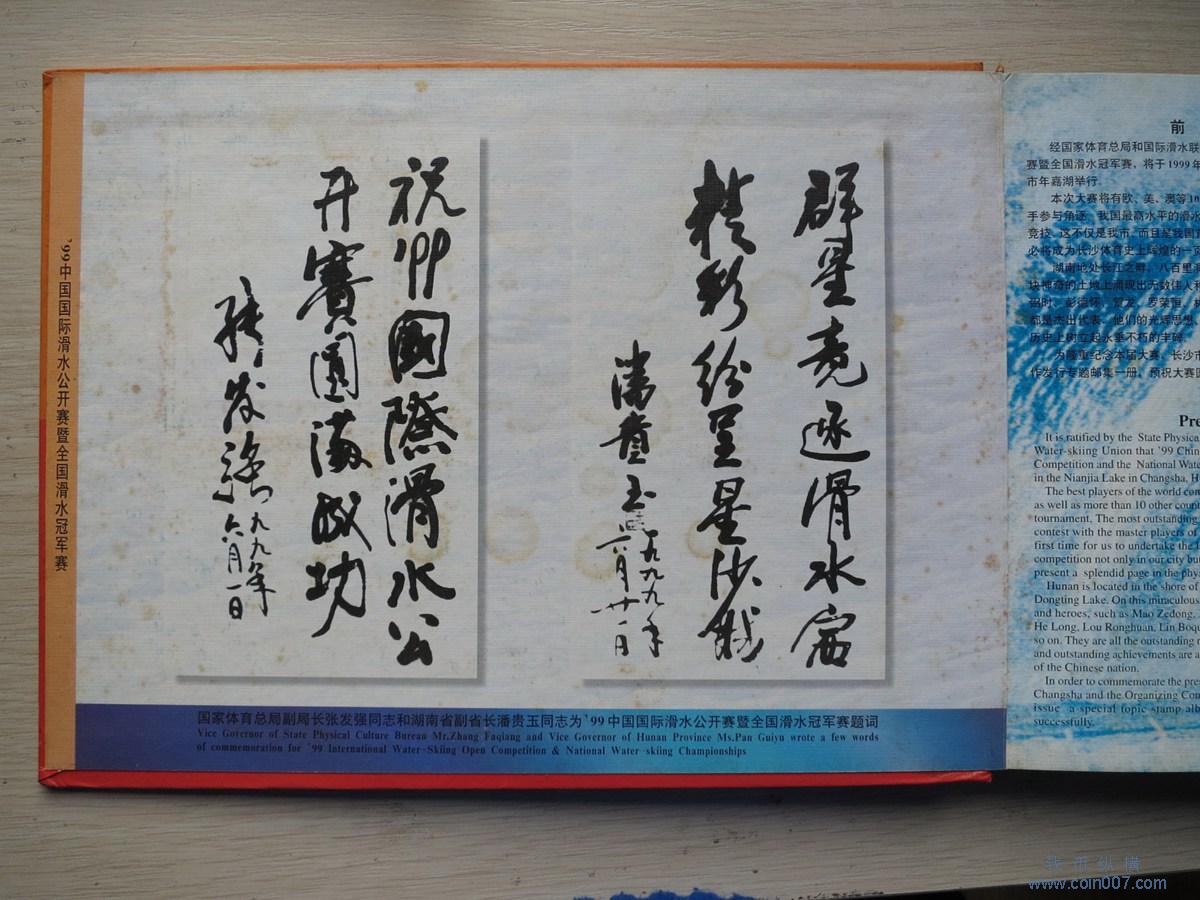 '99中国国际滑水公开赛暨全国滑水冠军赛
祝'99國際滑水公
开賽圓滿成功
张发強
一九九九年
六月一日
群星竞逐滑水宫
精彩纷呈星沙城
潘贵玉
一九九九年
六月廿一日
国家体育总局副局长张发强同志和湖南省副省长潘贵玉同志为'99中国国际滑水公开赛暨全国滑水冠军赛题词
Vice Governor of State Physical Culture Bureau Mr.Zhang Faqiang and Vice Governor of Hunan Province Ms.Pan Guiyu wrote a few words
of commemoration for '99 International Water-Skiing Open Competition & National Water-skiing Championships
前
经国家体育总局和国际滑水联
赛暨全国滑水冠军赛，将于1999年
市年嘉湖举行。
本次大赛将有欧、美、澳等10
手参与角逐，我国最高水平的滑水
竞技，这不仅是我市，而且是我国首
必将成为长沙体育史上辉煌的一页
湖南地处长江之畔，八百里洞
块神奇的土地上涌现出无数伟人和
弼时、彭德怀、贺龙、罗荣桓、
都是杰出代表，他们的光辉思想、
历史上树立起永垂不朽的丰碑。
为隆重纪念本届大赛，长沙市
作发行专题邮集一册，预祝大赛圆
Pre
It is ratified by the State Physica
Water-skiing Union that '99 Chin
Competition and the National Wat
in the Nianjia Lake in Changsha, H
The best players of the world co
as well as more than 10 other coun
tournament. The most outstanding
contest with the master players of
first time for us to undertake the I
competition not only in our city but
present a splendid page in the phys
Hunan is located in the shore of
Dongting Lake. On this miraculous
and heroes, such as Mao Zedong,
He Long, Lou Ronghuan, Lin Boqu
so on. They are all the outstanding r
and outstanding achievements are a
of the Chinese nation.
In order to commemorate the pre
Changsha and the Organizing Com
issue a special topic stamp alb
successfully.
www.coin007.com